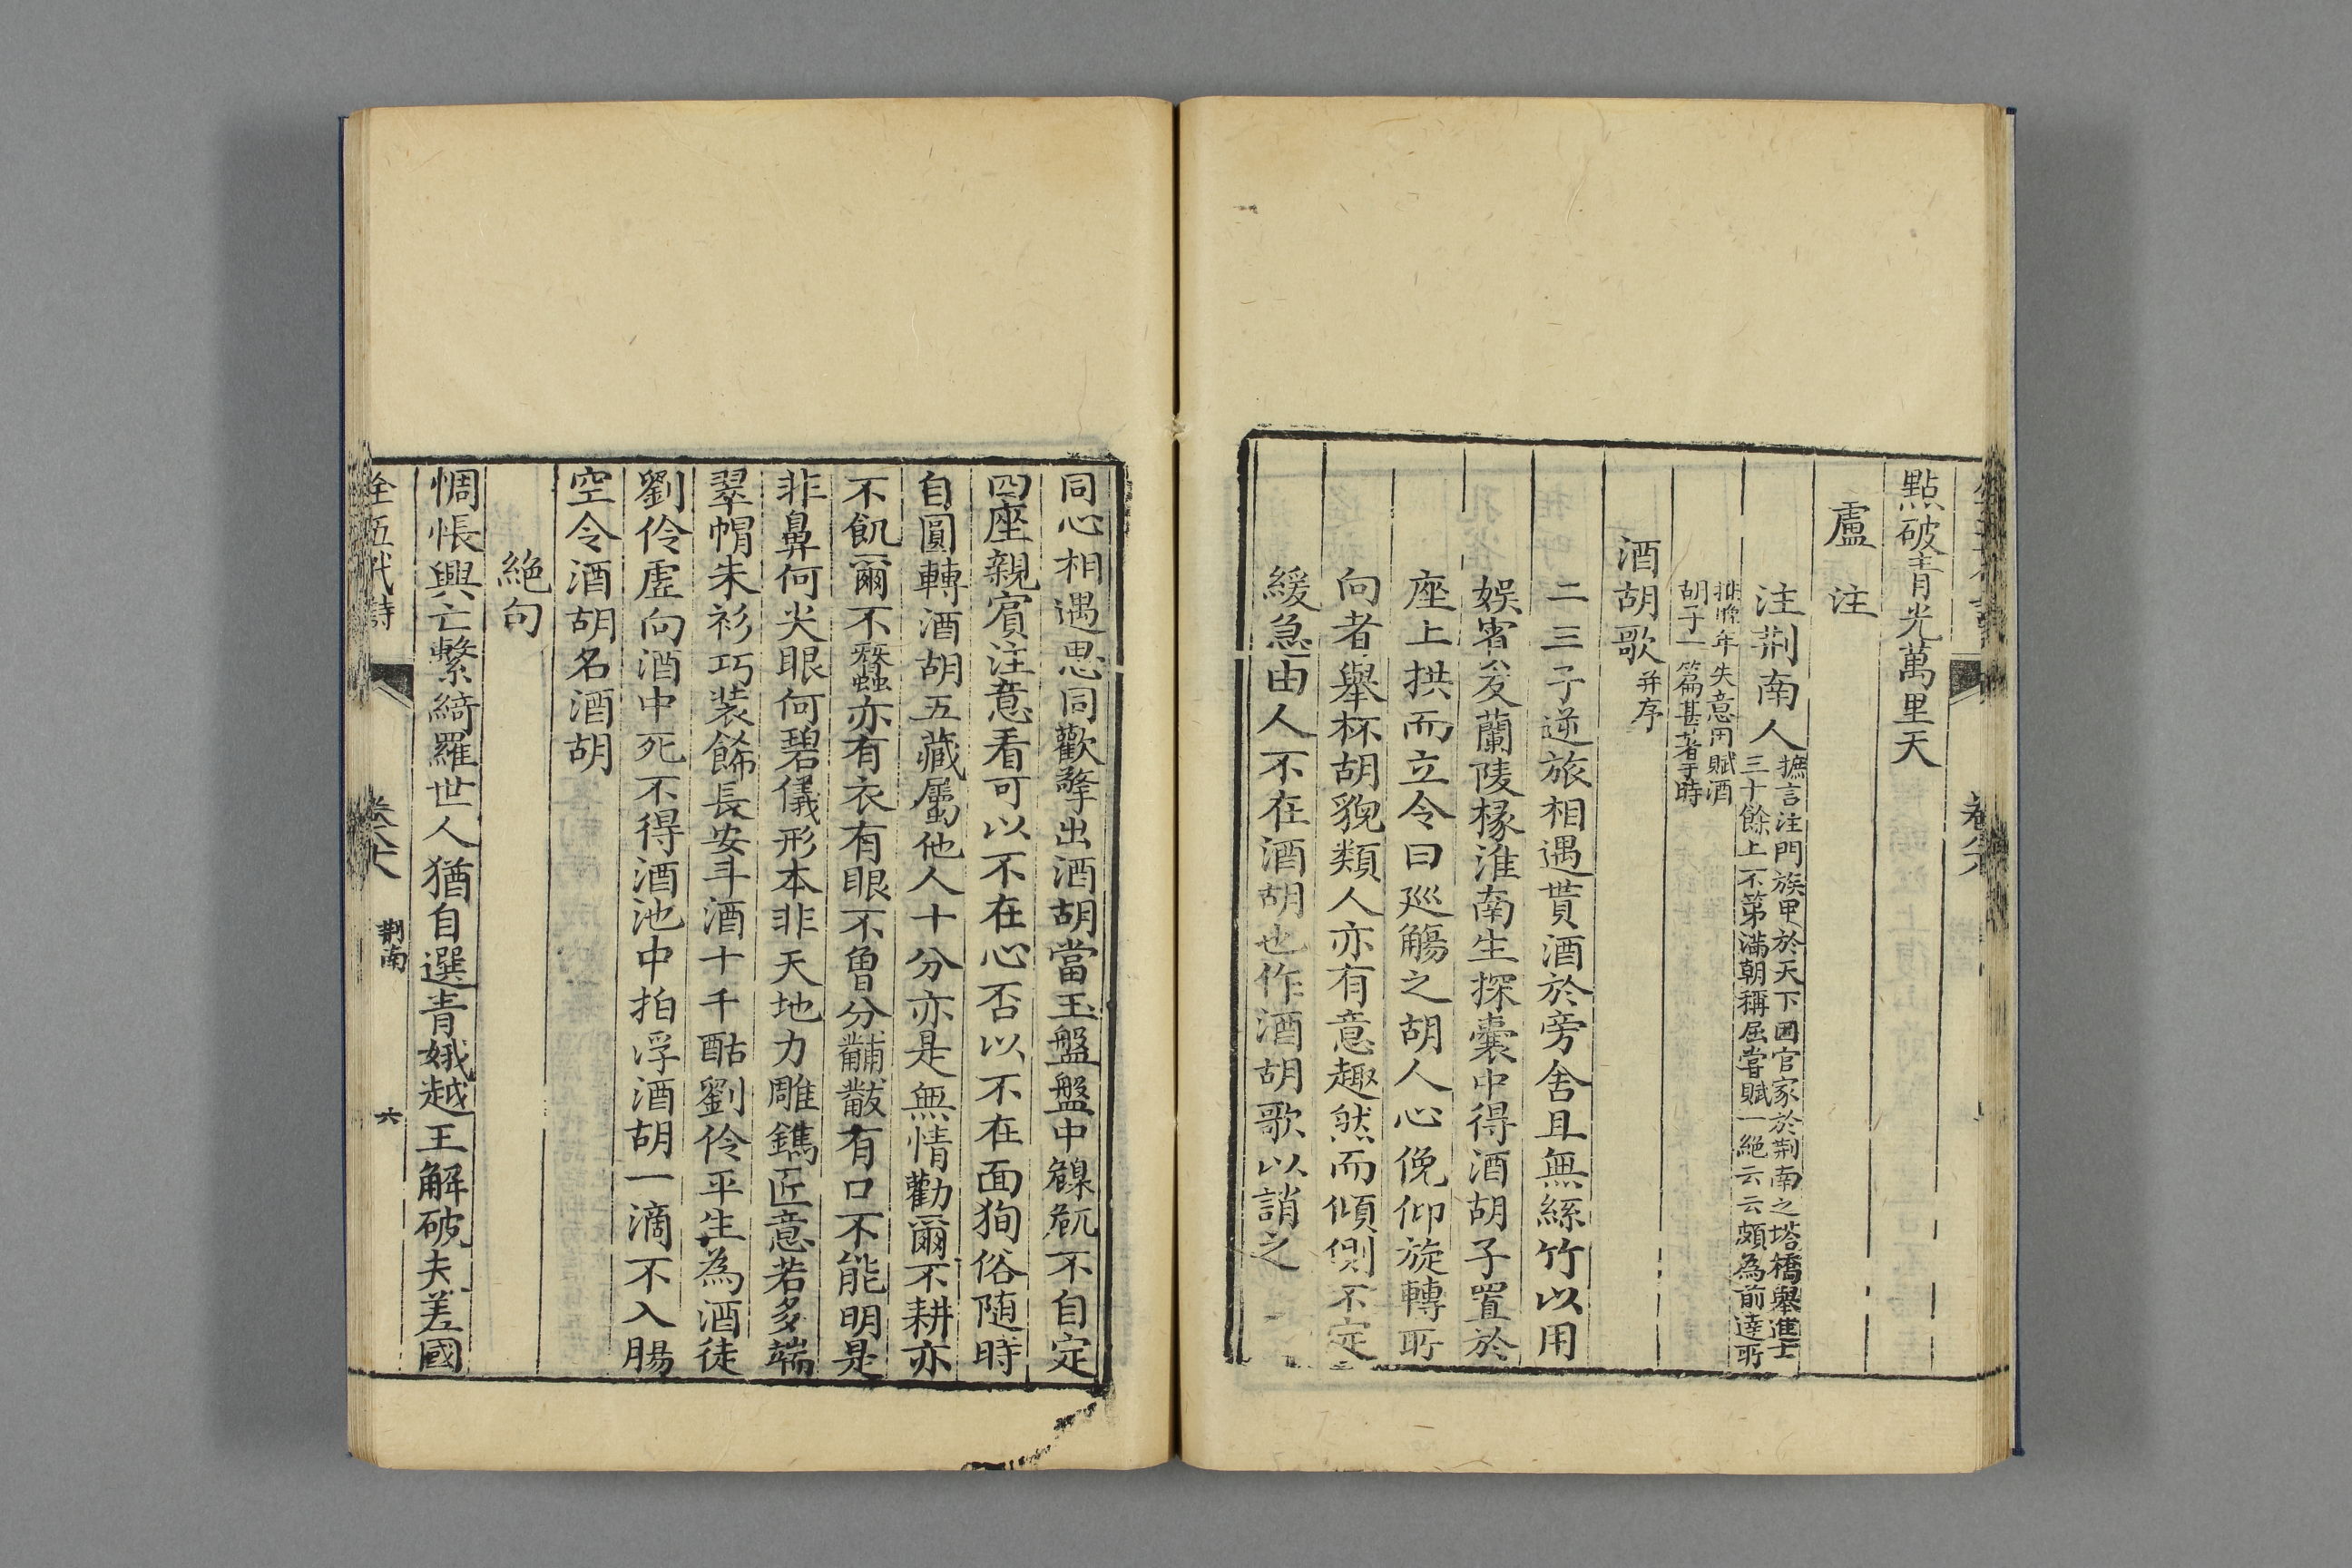 點破青光萬里天
盧 注
注荆南人
摭言注門族甲於天下因官家於荆南之塔橋舉進士
三十餘上不第滿朝稱屈嘗賦一絶云云頗為前達所
推晚年失意因賦酒
胡子一篇甚著于時
酒胡歌 并序
二三子逆旅相遇貰酒於旁舍且無絲竹以用
娯賓友蘭陵掾淮南生探囊中得酒胡子置於
座上拱而立令曰廵觴之胡人心俛仰旋轉所
向者舉杯胡貌類人亦有意趣然而傾側不定
緩急由人不在酒胡也作酒胡歌以誚之
同心相遇思同歡擎出酒胡當玉盤盤中臲卼不自定
四座親賔注意看可以不在心否以不在面狥俗随時
自圓轉酒胡五藏屬他人十分亦是無情勸爾不耕亦
不飢爾不蠶亦有衣有眼不曾分黼黻有口不能明是
非鼻何尖眼何碧儀形本非天地力雕鐫匠意若多端
翠帽朱衫巧装餙長安斗酒十千酤劉伶平生為酒徒
劉伶虗向酒中死不得酒池中拍浮酒胡一滴不入腸
空令酒胡名酒胡
絶句
惆悵興亡繫綺羅世人猶自選青娥越王解破夫差國
全五代詩 卷六 荆南 六